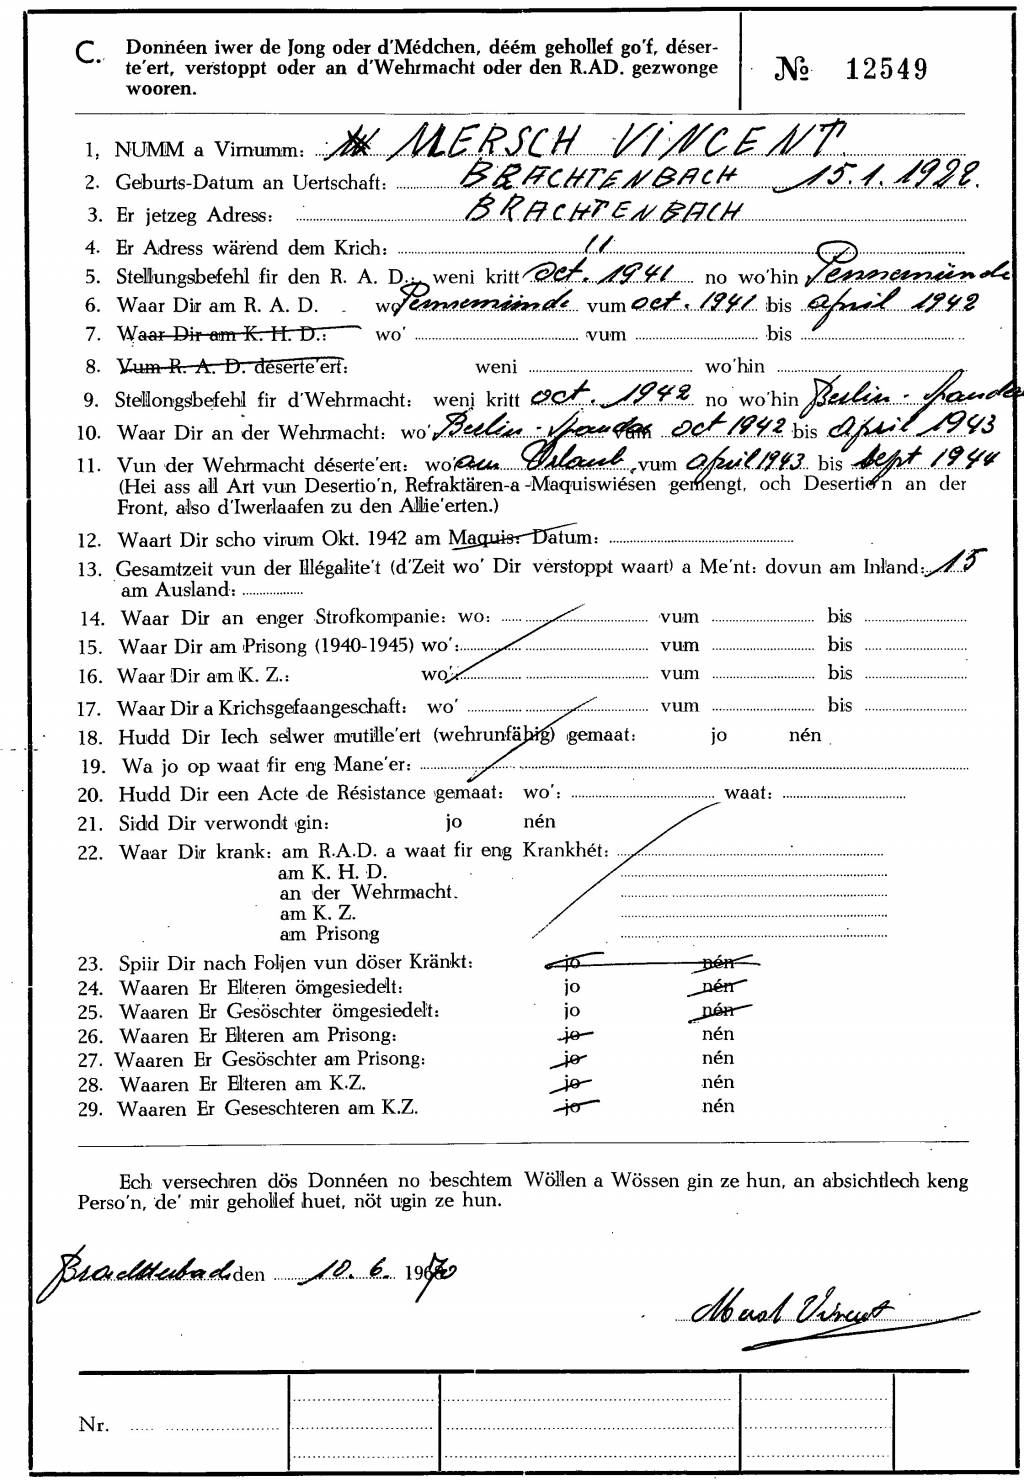 C. Donnéen iwer de Jong oder d'Médchen, déém gehollef go'f, déser-
te'ert, verstoppt oder an d'Wehrmacht oder den R.AD. gezwonge
wooren.
№ 12549
1, NUMM a Virnumm: MERSCH VINCENT
2. Geburts-Datum an Uertschaft: BRACHTENBACH 15.1.1922.
3. Er jetzeg Adress: BRACHTENBACH
4. Er Adress wärend dem Krich: 11
5. Stellungsbefehl fir den R. A. D.: weni kritt Oct. 1941 no wo'hin Pennemünde
6. Waar Dir am R. A. D. wo' Pennemünde vum oct. 1941 bis april 1942
7. Waar Dir am K. H. D.: wo' vum bis
8. Vum R. A. D. déserte'ert: weni wo'hin
9. Stellongsbefehl fir d'Wehrmacht: weni kritt oct. 1942 no wo'hin Berlin-Spandau
10. Waar Dir an der Wehrmacht: wo' Berlin-Spandau vum oct 1942 bis April 1943
11. Vun der Wehrmacht déserte'ert: wo' am Urlaub vum April 1943 bis Sept 1944
(Hei ass all Art vun Desertio'n, Refraktären-a-Maquiswiésen gemengt, och Desertio'n an der
Front, also d'Iwerlaafen zu den Allie'erten.)
12. Waart Dir scho virum Okt. 1942 am Maquis: Datum:
13. Gesamtzeit vun der Illégalite't (d'Zeit wo' Dir verstoppt waart) a Me'nt: dovun am Inland: 15
am Ausland:
14. Waar Dir an enger Strofkompanie: wo: vum bis
15. Waar Dir am Prisong (1940-1945) wo': vum bis
16. Waar Dir am K. Z.: wo': vum bis
17. Waar Dir a Krichsgefaangeschaft: wo' vum bis
18. Hudd Dir Iech selwer mutille'ert (wehrunfähig) gemaat: jo nén
19. Wa jo op waat fir eng Mane'er:
20. Hudd Dir een Acte de Résistance gemaat: wo': waat:
21. Sidd Dir verwondt gin: jo nén
22. Waar Dir krank: am R.A.D. a waat fir eng Krankhét:
am K. H. D.
an der Wehrmacht.
am K. Z.
am Prisong
23. Spiir Dir nach Foljen vun döser Kränkt: jo nén
24. Waaren Er Elteren ömgesiedelt: jo nén
25. Waaren Er Gesöschter ömgesiedelt: jo nén
26. Waaren Er Elteren am Prisong: jo nén
27. Waaren Er Gesöschter am Prisong: jo nén
28. Waaren Er Elteren am K.Z. jo nén
29. Waaren Er Geseschteren am K.Z. jo nén
Ech versechren dös Donnéen no beschtem Wöllen a Wössen gin ze hun, an absichtlech keng
Perso'n, de' mir gehollef huet, nöt ugin ze hun.
Brachtenbach den 10.6. 1970
Mersch Vincent
Nr.